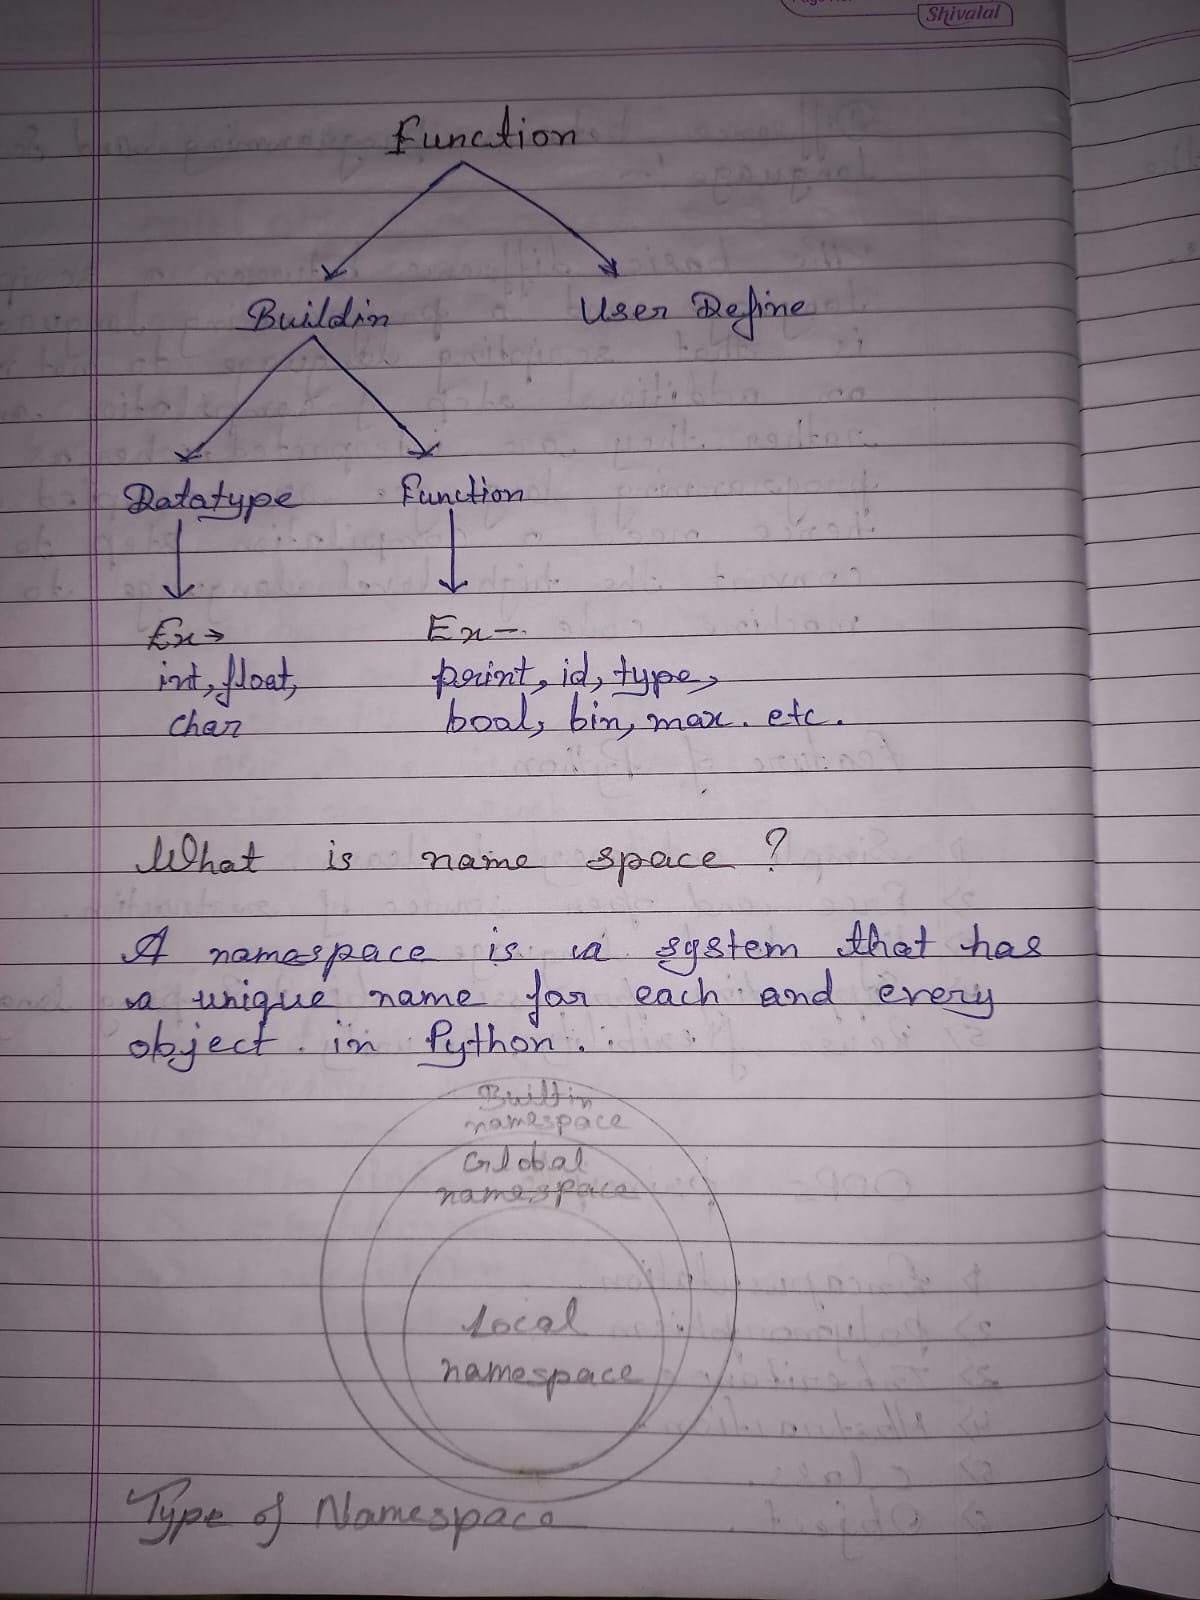 Shivalal
Function
Buildin User Define
Datatype Function
Ex→ Ex-
int, float, print, id, type,
char boal, bin, max. etc.
What is name space ?
A namespace is a system that has
a unique name for each and every
object in Python.
Builtin
namespace
Global
namespace
Local
namespace
Type of Namespace